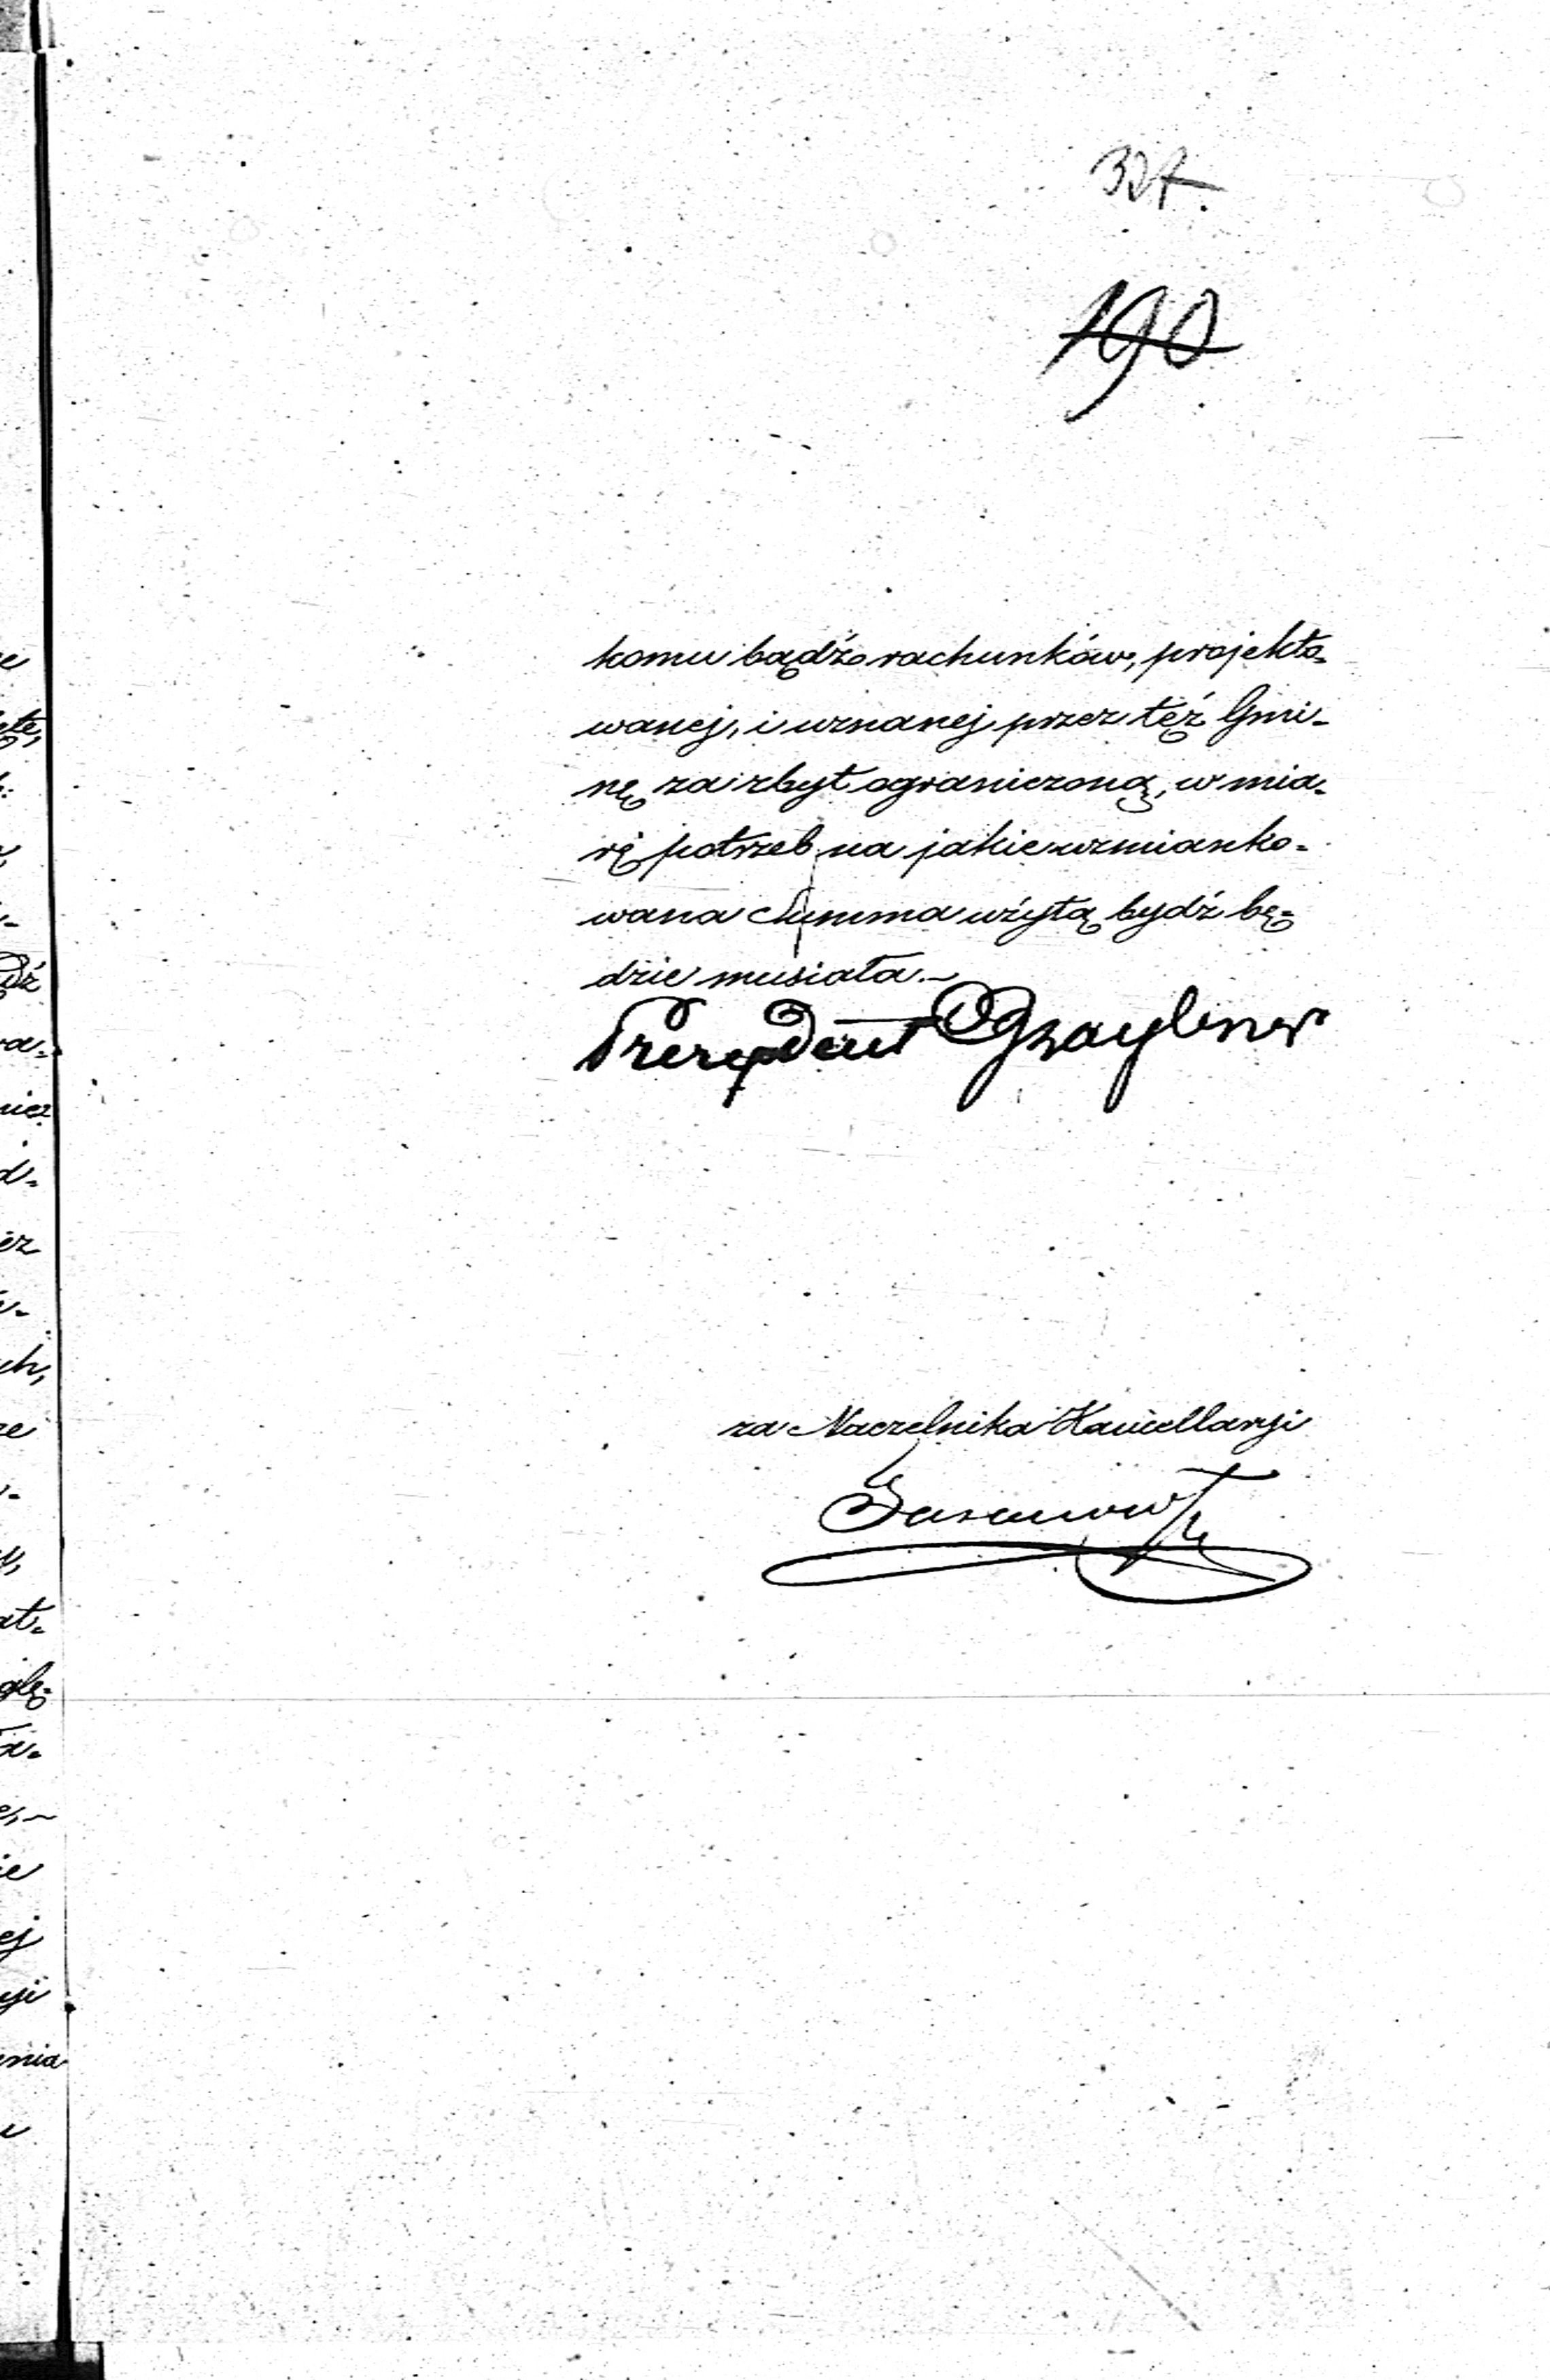 327.
190
komu bądź rachunków, projekto-
wanej, i uznanej przez też Gmi-
nę za zbyt ograniczoną, w mia-
rę potrzeb na jakie wzmianko-
wana Summa użytą bydź bę-
dzie musiała.~
Prezydent Graybner
za Naczelnika Kancellaryi